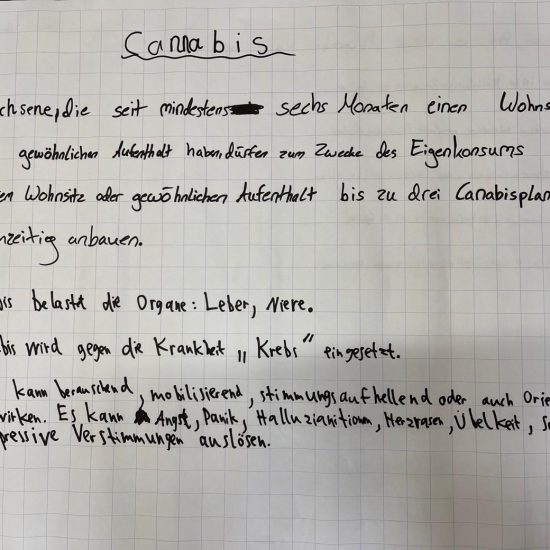 Cannabis
chsene, die seit mindestens sechs Monaten einen Wohns
gewöhnlichen Aufenthalt haben, dürfen zum Zwecke des Eigenkonsums
en Wohnsitz oder gewöhnlichen Aufenthalt bis zu drei Canabisplan
hzeitig anbauen.
bis belastet die Organe: Leber, Niere.
bis wird gegen die Krankheit „Krebs" eingesetzt.
kann berauschend, mobilisierend, stimmungsaufhellend oder auch Orie
wirken. Es kann Angst, Panik, Halluzianitionn, Herzrasen, Übelkeit, S
pressive Verstimmungen auslösen.